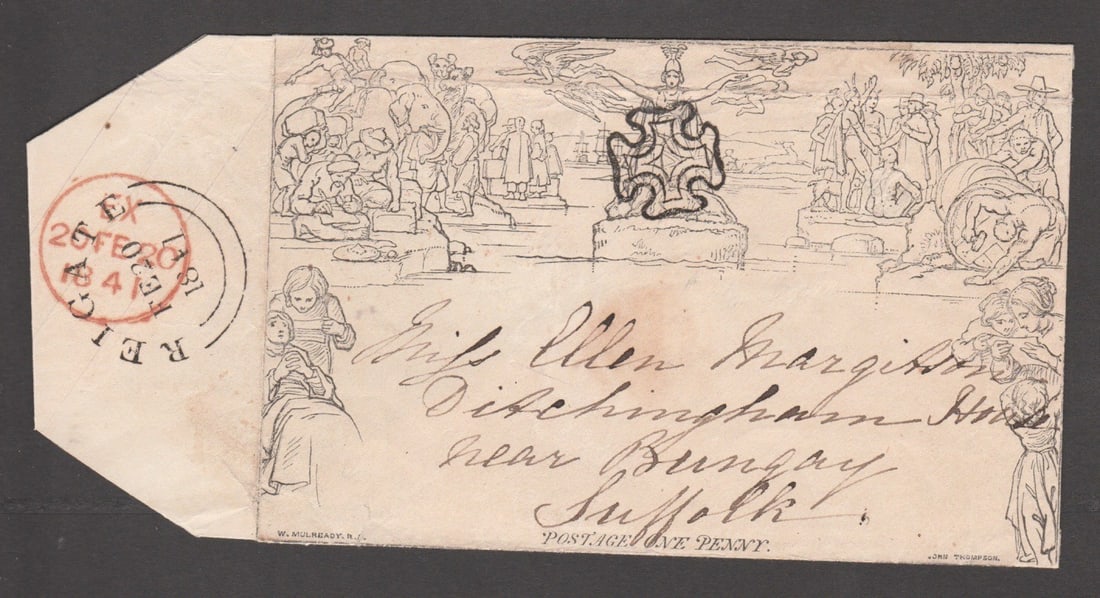 REIGATE
FE 20
1841
EX
20 FE 20
1841
Miss Ellen Margitson
Ditchingham
near Bungay
Suffolk.
W. MULREADY. R.A.
POSTAGE ONE PENNY.
JOHN THOMPSON.